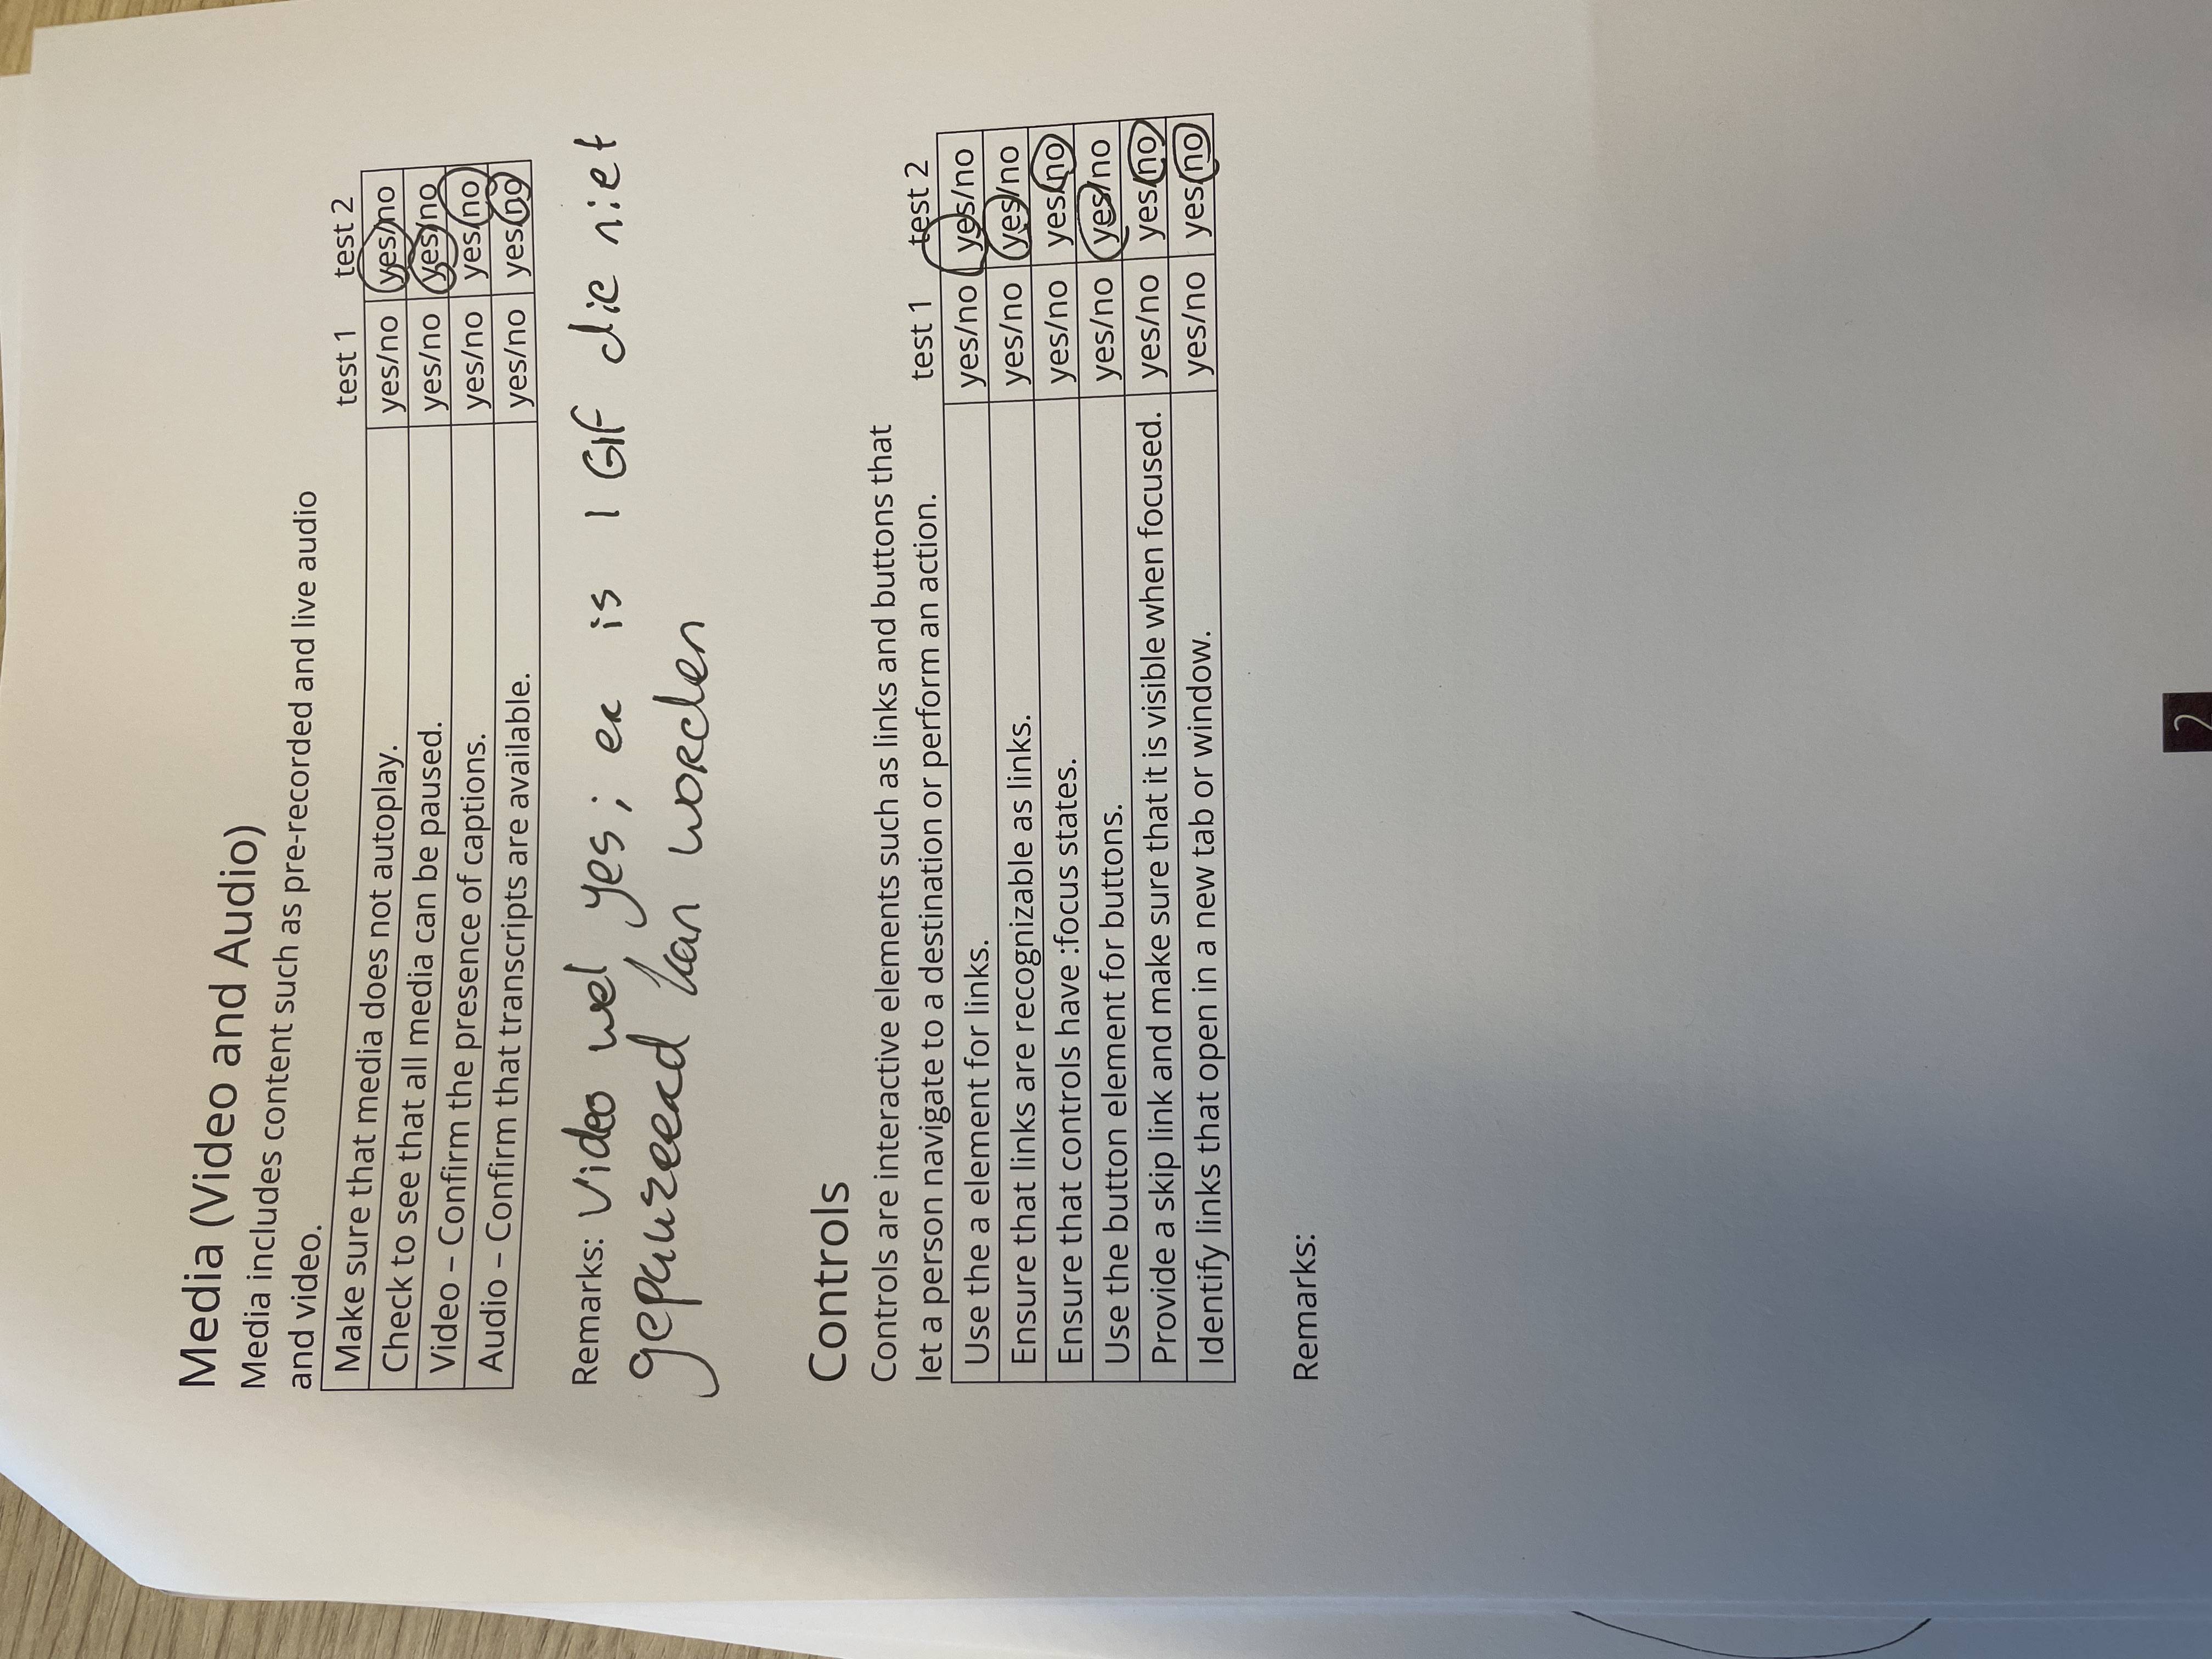 Media (Video and Audio)
Media includes content such as pre-recorded and live audio
and video.
test 1 test 2
Make sure that media does not autoplay. yes/no yes/no
Check to see that all media can be paused. yes/no yes/no
Video – Confirm the presence of captions. yes/no yes/no
Audio – Confirm that transcripts are available. yes/no yes/no
Remarks: Video wel yes; er is 1 GIF die niet
gepauzeerd kan worden
Controls
Controls are interactive elements such as links and buttons that
let a person navigate to a destination or perform an action. test 1 test 2
Use the a element for links. yes/no yes/no
Ensure that links are recognizable as links. yes/no yes/no
Ensure that controls have :focus states. yes/no yes/no
Use the button element for buttons. yes/no yes/no
Provide a skip link and make sure that it is visible when focused. yes/no yes/no
Identify links that open in a new tab or window. yes/no yes/no
Remarks:
2